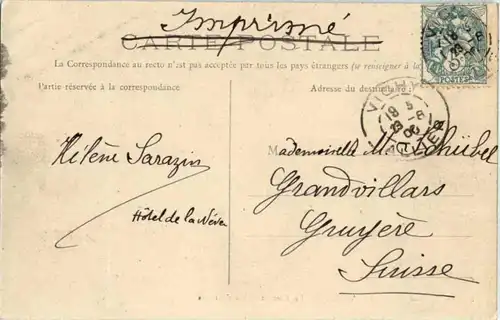 Imprimé
CARTE POSTALE
La Correspondance au recto n'est pas acceptée par tous les pays étrangers (se renseigner à la
Partie réservée à la correspondance
Adresse du destinataire:
VICHY
18 5
23 -8
06
ALLIER
POSTES
Hélène Sarazin
Mademoiselle M. Schübel
Hôtel de la
Grandvillars
Gruyère
Suisse